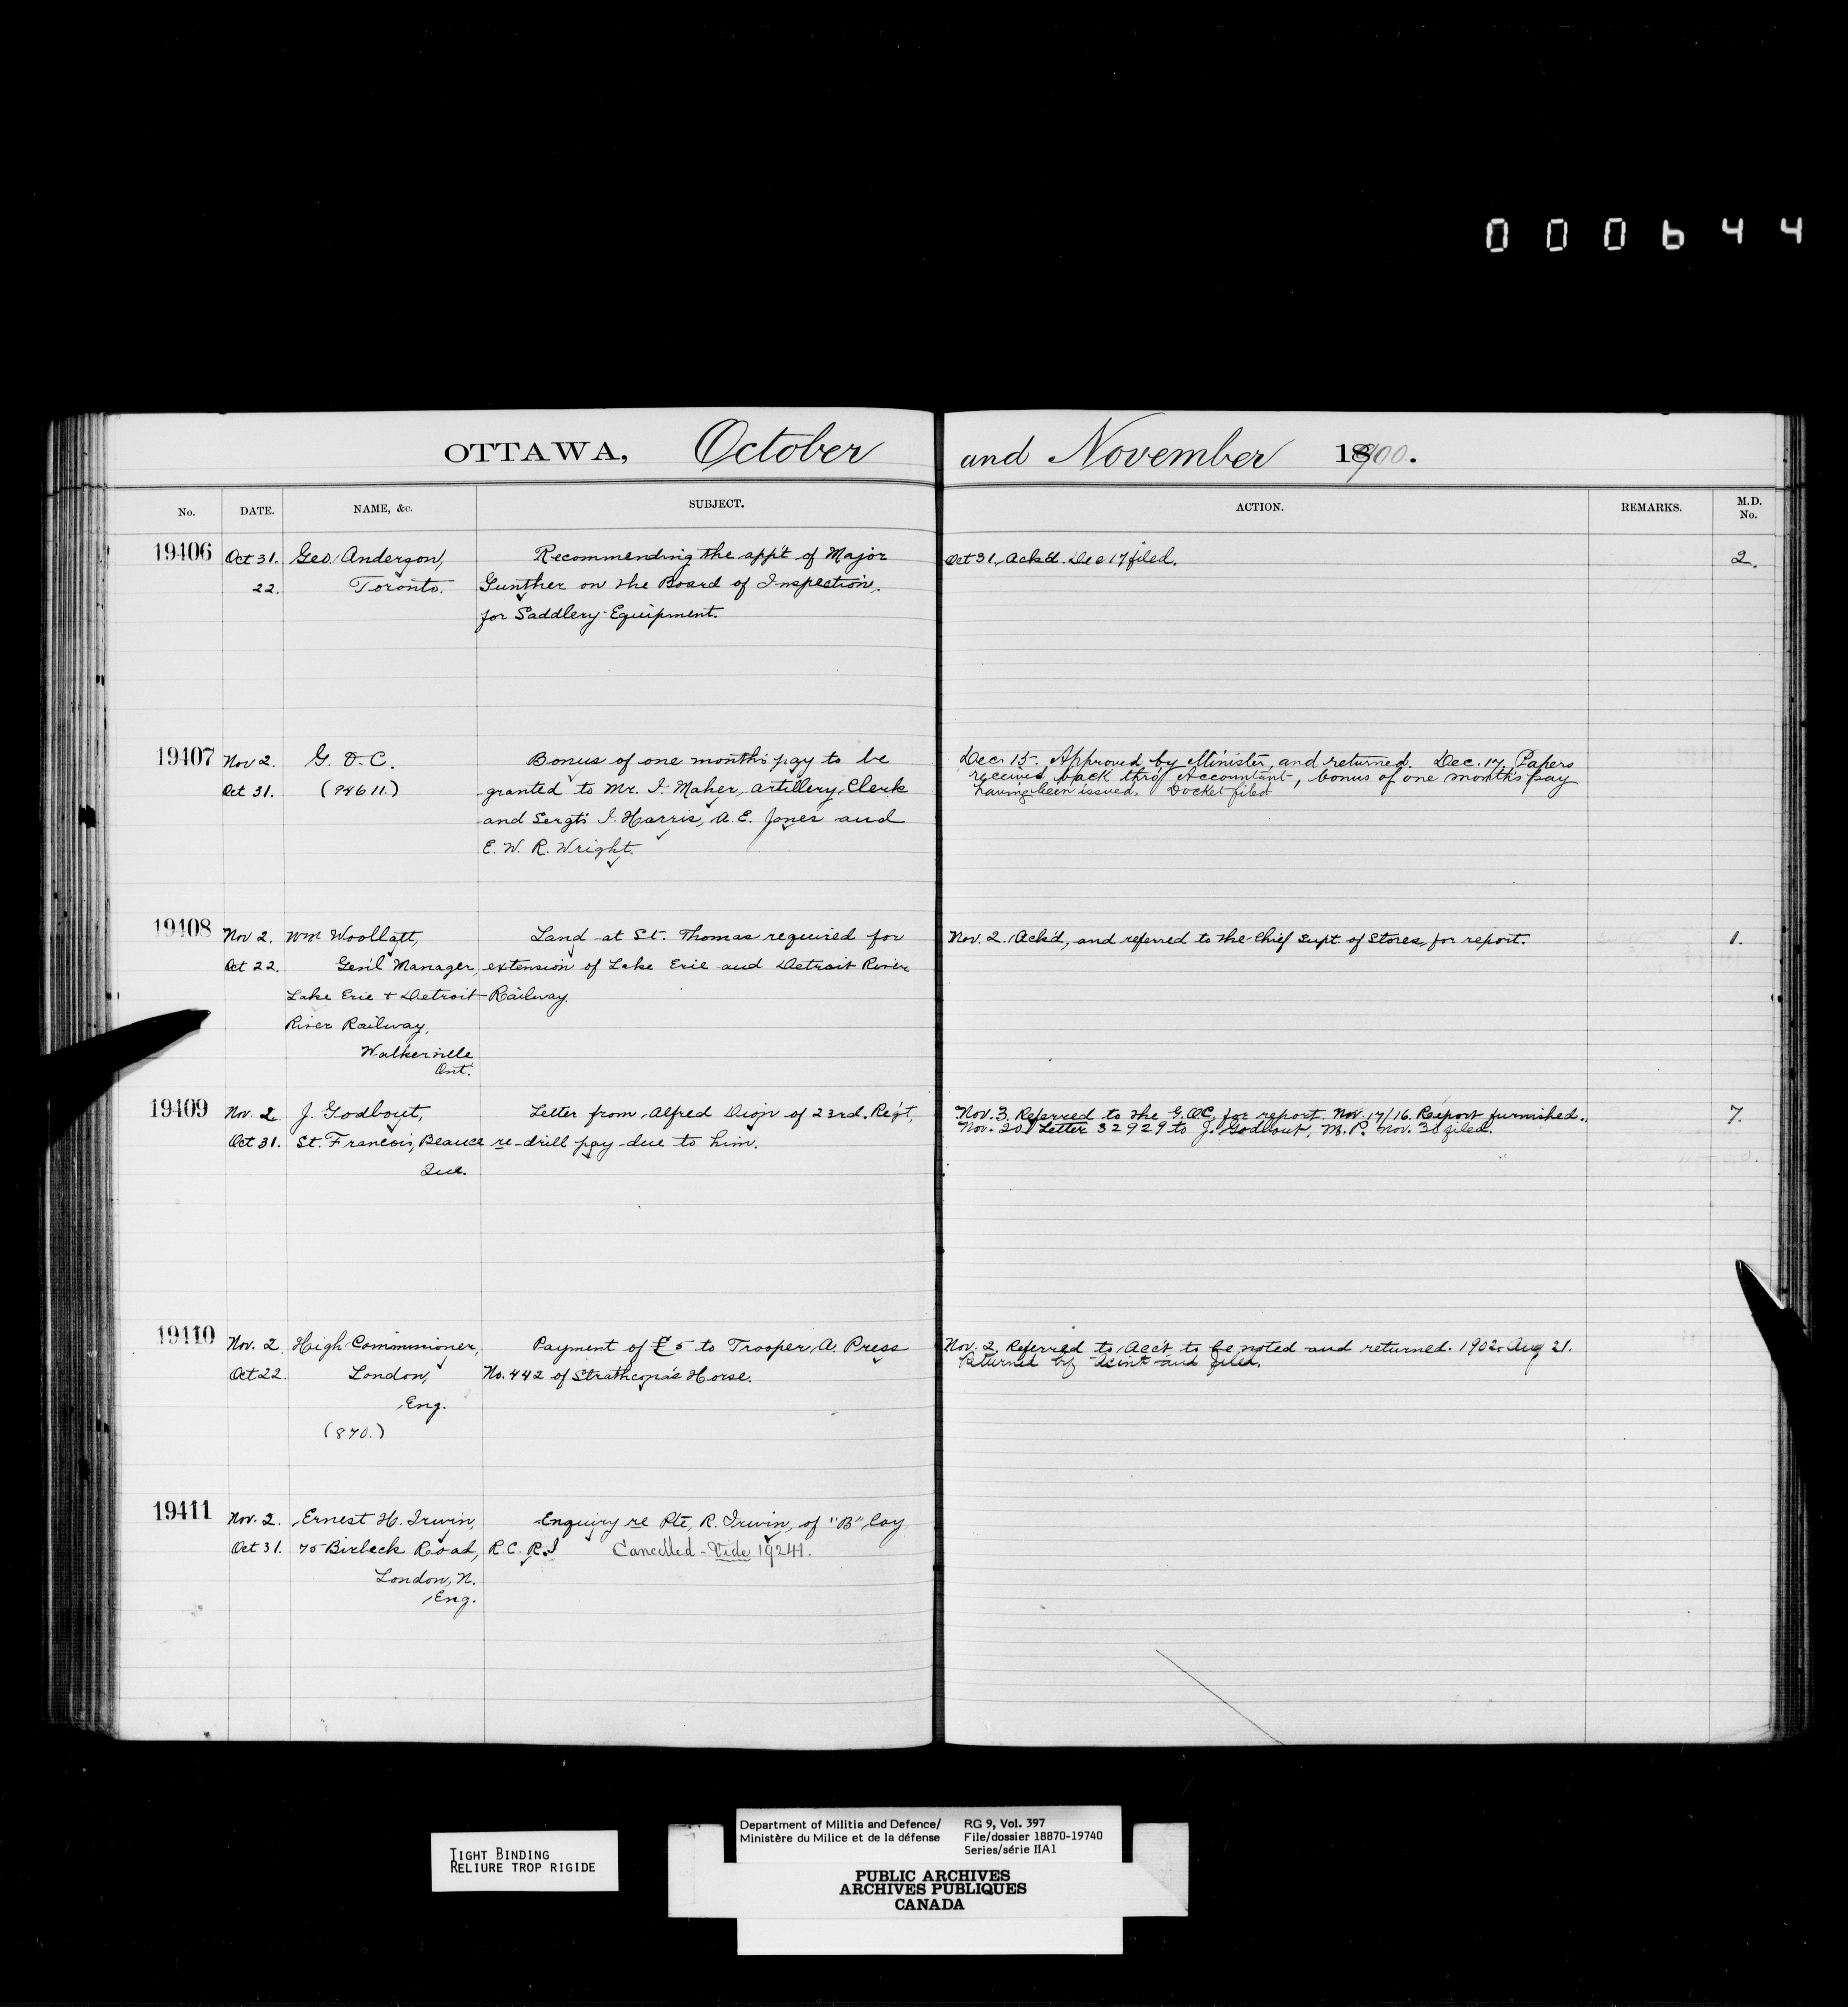 000644
OTTAWA, October and November 1900.
No. DATE. NAME, &c. SUBJECT. ACTION. REMARKS. M.D. No.
19406 Oct 31. Geo. Anderson, Recommending the app't of Major Oct 31, Ack'd. Dec 17 filed. 2.
22. Toronto. Gunther on the Board of Inspection,
for Saddlery Equipment.
19407 Nov 2. G. O. C. Bonus of one month's pay to be Dec. 15. Approved by Minister, and returned. Dec. 17, Papers
Oct 31. (94611.) granted to Mr. I. Maher, Artillery Clerk received back thro' Accountant, bonus of one month's pay
having been issued. Docket filed
and Sergts I. Harris, A. E. Jones and
E. W. R. Wright.
19408 Nov 2. Wm Woollatt, Land at St. Thomas required for Nov. 2. Ack'd, and referred to the Chief Supt. of Stores, for report. 1.
Oct 22. Gen'l Manager, extension of Lake Erie and Detroit River
Lake Erie & Detroit Railway.
River Railway,
Walkerville
Ont.
19409 Nov. 2 J. Godbout, Letter from Alfred Dion of 23rd. Reg't, Nov. 3. Referred to the G.O.C. for report. Nov. 17/16. Report furnished. 7.
Nov. 20. Letter 32929 to J. Godbout, M.P. Nov. 30 filed.
Oct 31. St. Francois, Beauce re drill pay due to him.
Que.
19410 Nov. 2 High Commissioner, Payment of £5 to Trooper A. Press Nov. 2. Referred to Acc't to be noted and returned. 1902. Aug 21.
Returned by Acc't and filed.
Oct 22. London, No. 442 of Strathcona's Horse.
Eng.
(870.)
19411 Nov. 2. Ernest H. Irwin, Enquiry re Pte. R. Irwin, of "B" Coy
Oct 31. 75 Birbeck Road, R.C.R.I Cancelled - Vide 19241.
London, N.
Eng.
TIGHT BINDING
RELIURE TROP RIGIDE
Department of Militia and Defence/ RG 9, Vol. 397
Ministère du Milice et de la défense File/dossier 18870-19740
Series/série IIA1
PUBLIC ARCHIVES
ARCHIVES PUBLIQUES
CANADA